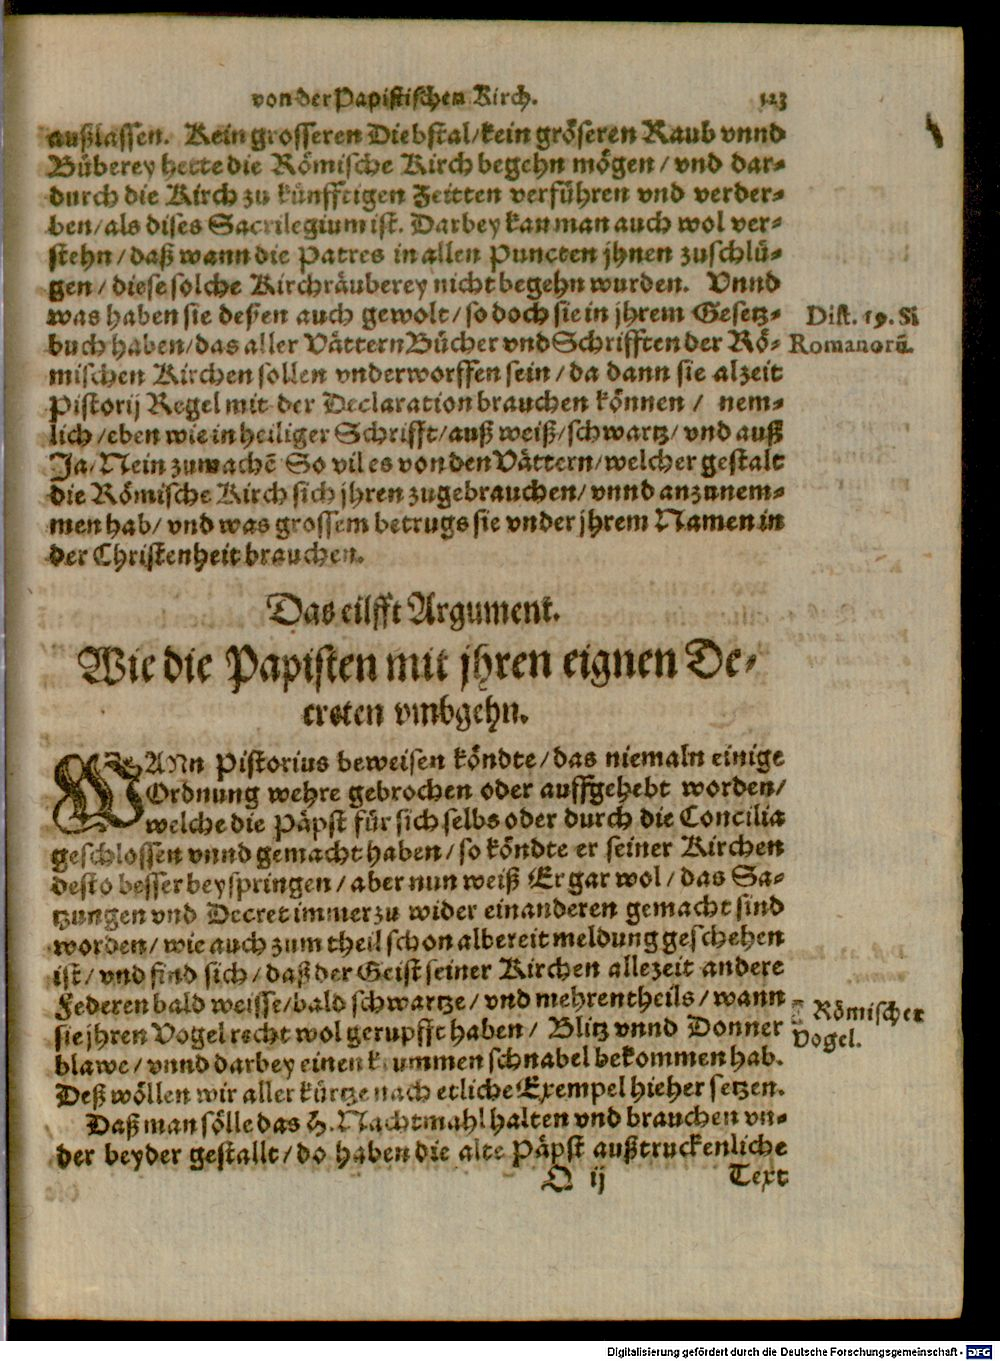 von der Papistischen Kirch. 123
außlassen. Kein grosseren Diebstal/kein gröseren Raub vnnd
Büberey hette die Römische Kirch begehn mögen/ vnd dar-
durch die Kirch zu künfftigen Zeitten verführen vnd verder-
ben/als dises Sacrilegium ist. Darbey kan man auch wol ver-
stehn/ daß wann die Patres in allen Puncten jhnen zuschlü-
gen/ diese solche Kirchräuberey nicht begehn wurden. Vnnd
was haben sie deßen auch gewolt/ so doch sie in jhrem Gesetz-
Dist. 19. Si
buch haben/das aller Vättern Bücher vnd Schrifften der Rö-
Romanorū.
mischen Kirchen sollen vnderworffen sein/ da dann sie alzeit
Pistorij Regel mit der Declaration brauchen können/ nem-
lich/ eben wie in heiliger Schrifft/ auß weiß/schwartz/ vnd auß
Ja/ Nein zumachē So vil es von den Vättern/welcher gestalt
die Römische Kirch sich jhren zugebrauchen/ vnnd anzunem-
men hab/ vnd was grossem betrugs sie vnder jhrem Namen in
der Christenheit brauchen.
Das eilfft Argument.
Wie die Papisten mit jhren eignen De-
creten vmbgehn.
WANn Pistorius beweisen köndte/das niemaln einige
Ordnung wehre gebrochen oder auffgehebt worden/
welche die Päpst für sich selbs oder durch die Concilia
geschlossen vnnd gemacht haben/ so köndte er seiner Kirchen
desto besser beyspringen/ aber nun weiß Er gar wol/ das Sa-
tzungen vnd Decret immerzu wider einanderen gemacht sind
worden/ wie auch zum theil schon albereit meldung geschehen
ist/ vnd sind sich/ daß der Geist seiner Kirchen allezeit andere
Federen bald weisse/bald schwartze/ vnd mehrentheils/ wann
Römischer
sie jhren Vogel recht wol gerupfft haben/ Blitz vnnd Donner
Vogel.
blawe/ vnnd darbey einen krummen schnabel bekommen hab.
Deß wöllen wir aller kürtze nach etliche Exempel hieher setzen.
Daß man sölle das H. Nachtmahl halten vnd brauchen vn-
der beyder gestallt/ do haben die alte Päpst außtruckenliche
Q ij Text
Digitalisierung gefördert durch die Deutsche Forschungsgemeinschaft - DFG